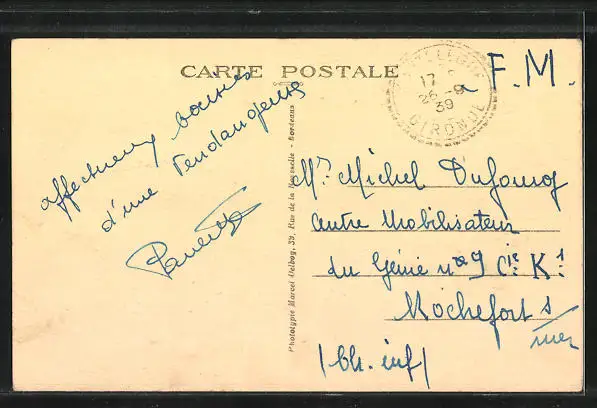 CARTE POSTALE
F.M.
17
26-9
39
GIRONDE
affectueux baisers
d'une vendangeuse
Phototypie Marcel Delboy, 39, Rue de la - Bordeaux
Mr Michel Dufourg
Centre Mobilisateur
du Génie no 9 Cie K1
Rochefort s/
mer
(Ch. inf)